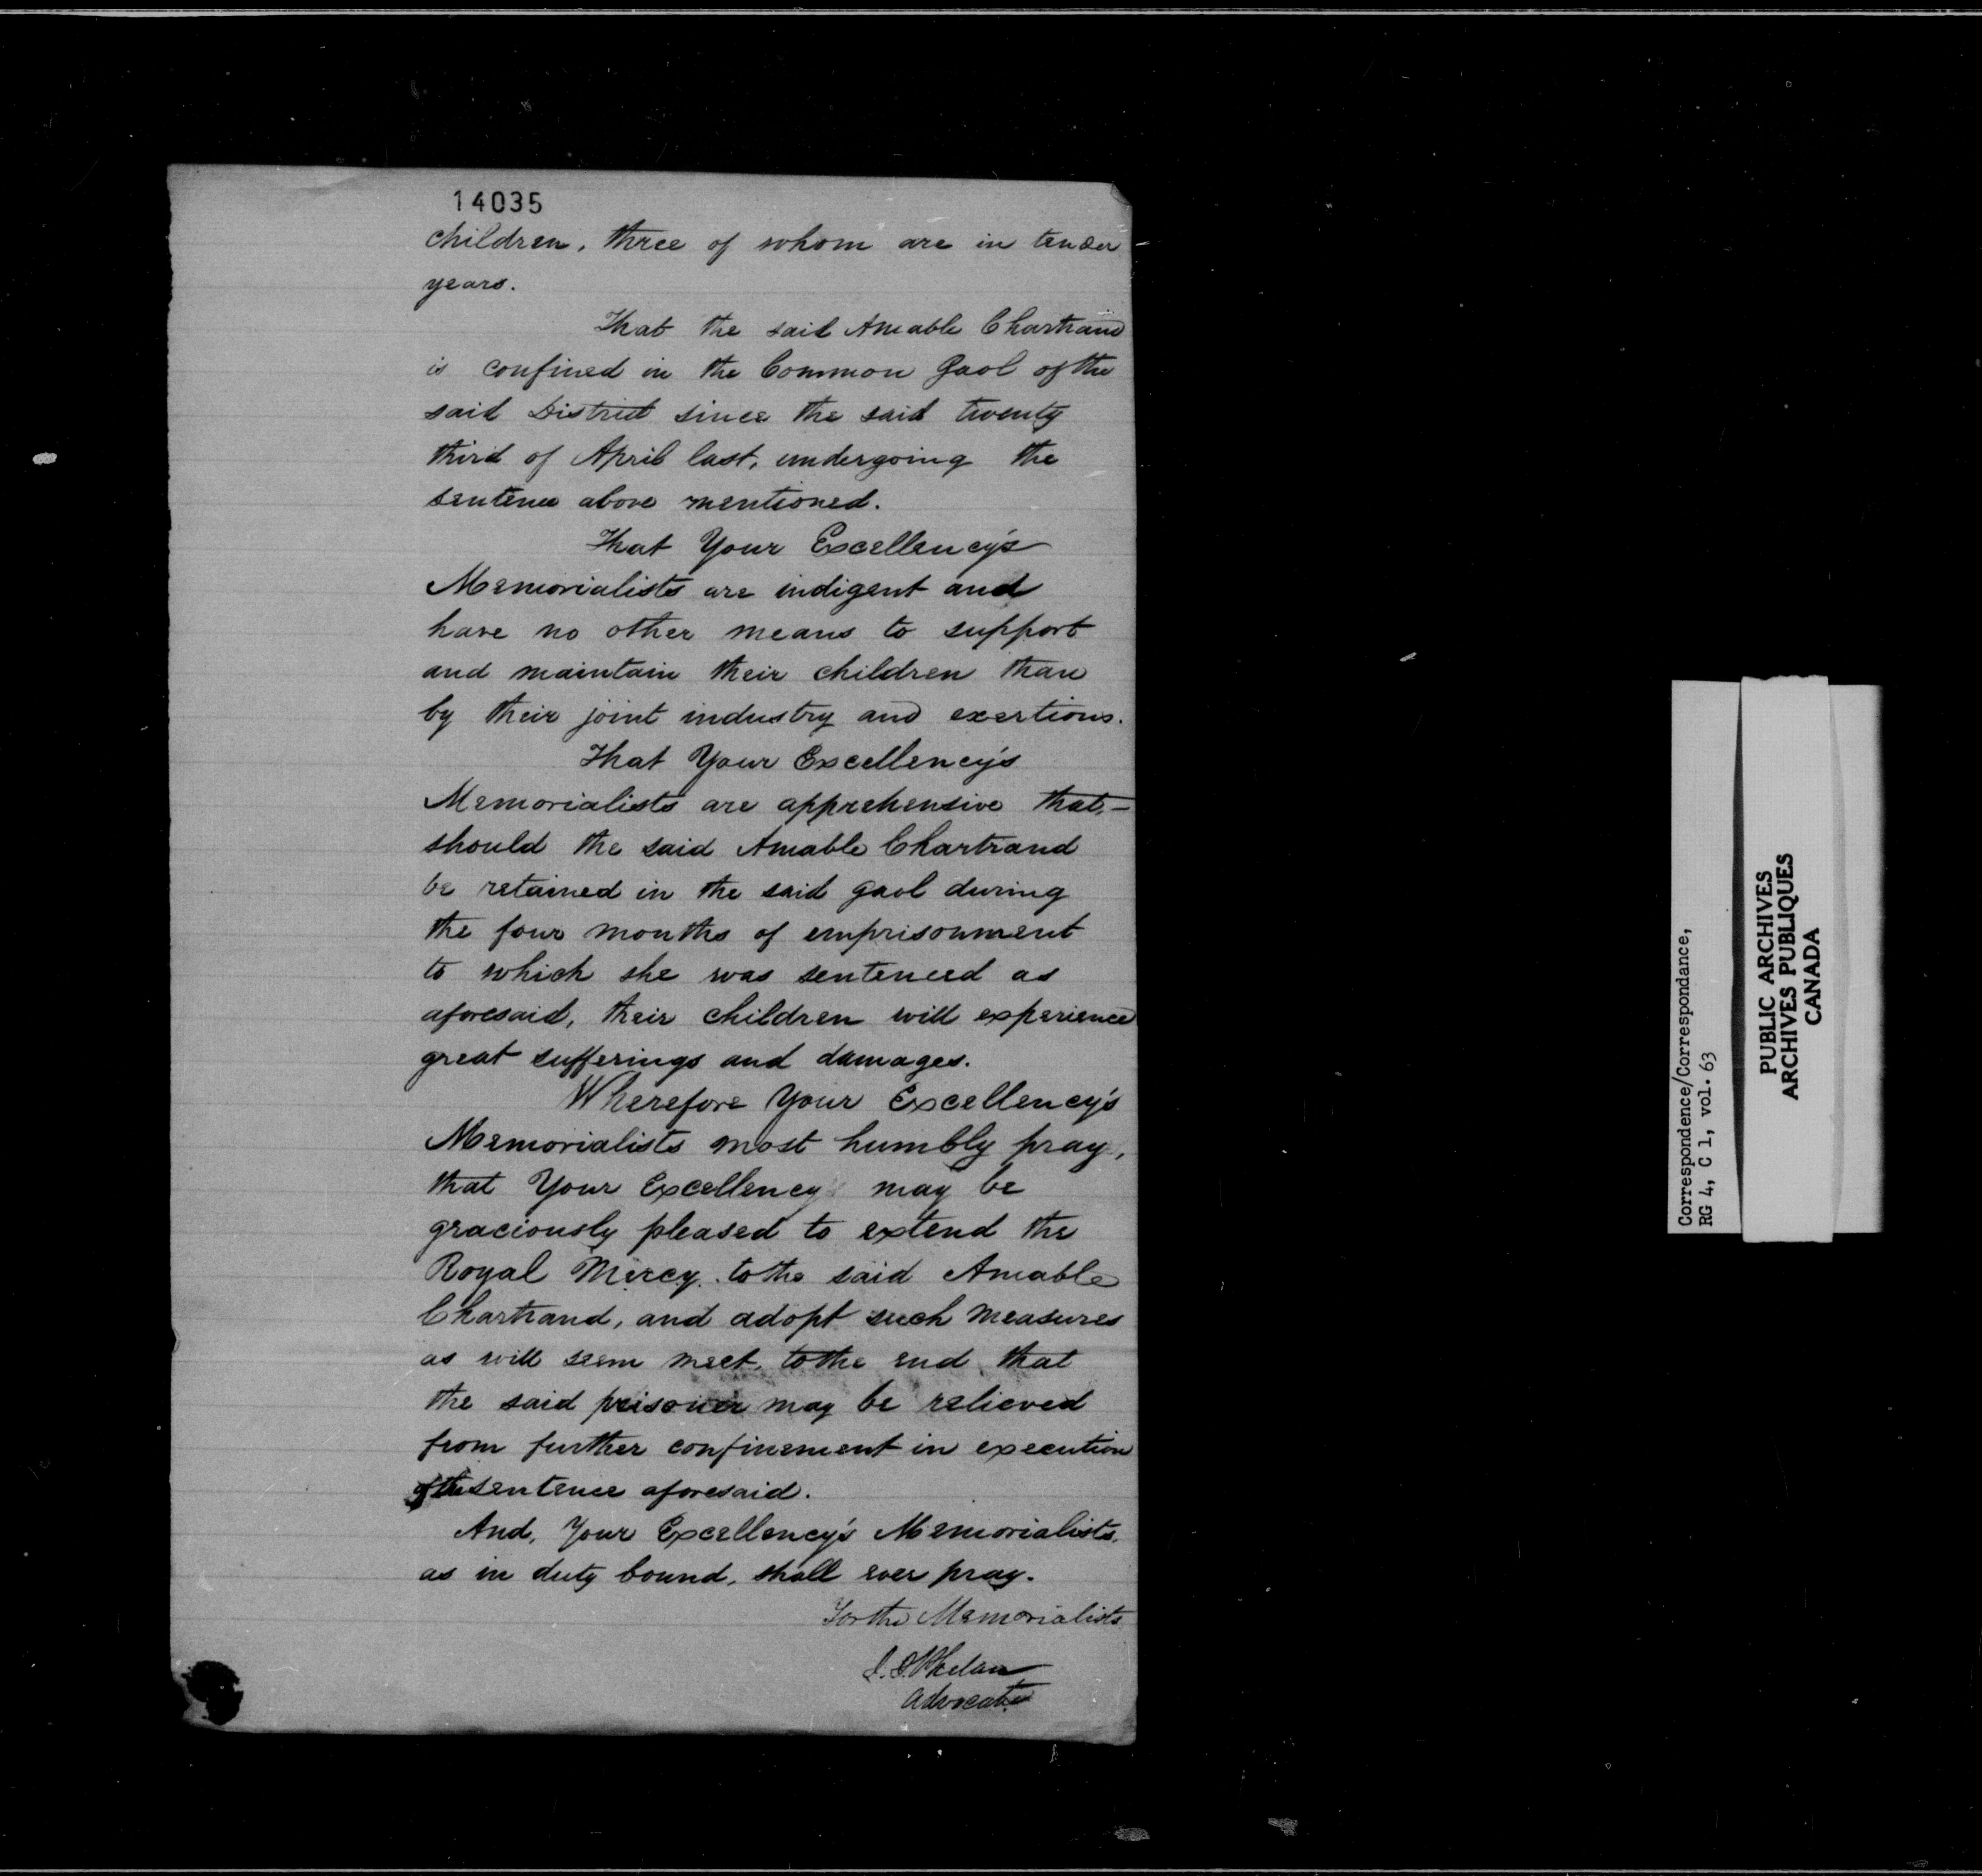 14035
children, three of whom are in tender
years.
That the said Amable Chartrand
is confined in the Common Gaol of the
said District since the said twenty
third of April last, undergoing the
sentence above mentioned.
That Your Excellency's
Memorialists are indigent and
have no other means to support
and maintain their children than
by their joint industry and exertions.
That Your Excellency's
Memorialists are apprehensive that, -
should the said Amable Chartrand
be retained in the said gaol during
the four months of emprisonment
to which she was sentenced as
aforesaid, their children will experience
great sufferings and damages.
Wherefore Your Excellency's
Memorialists most humbly pray,
that Your Excellency may be
graciously pleased to extend the
Royal Mercy to the said Amable
Chartrand, and adopt such measures
as will seem meet, to the end that
the said prisoner may be relieved
from further confinement in execution
of the sentence aforesaid.
And, Your Excellency's Memorialists,
as in duty bound, shall ever pray.
For the Memorialists
Phelan
Advocate
Correspondence/Correspondance,
RG 4, C 1, vol. 63
PUBLIC ARCHIVES
ARCHIVES PUBLIQUES
CANADA